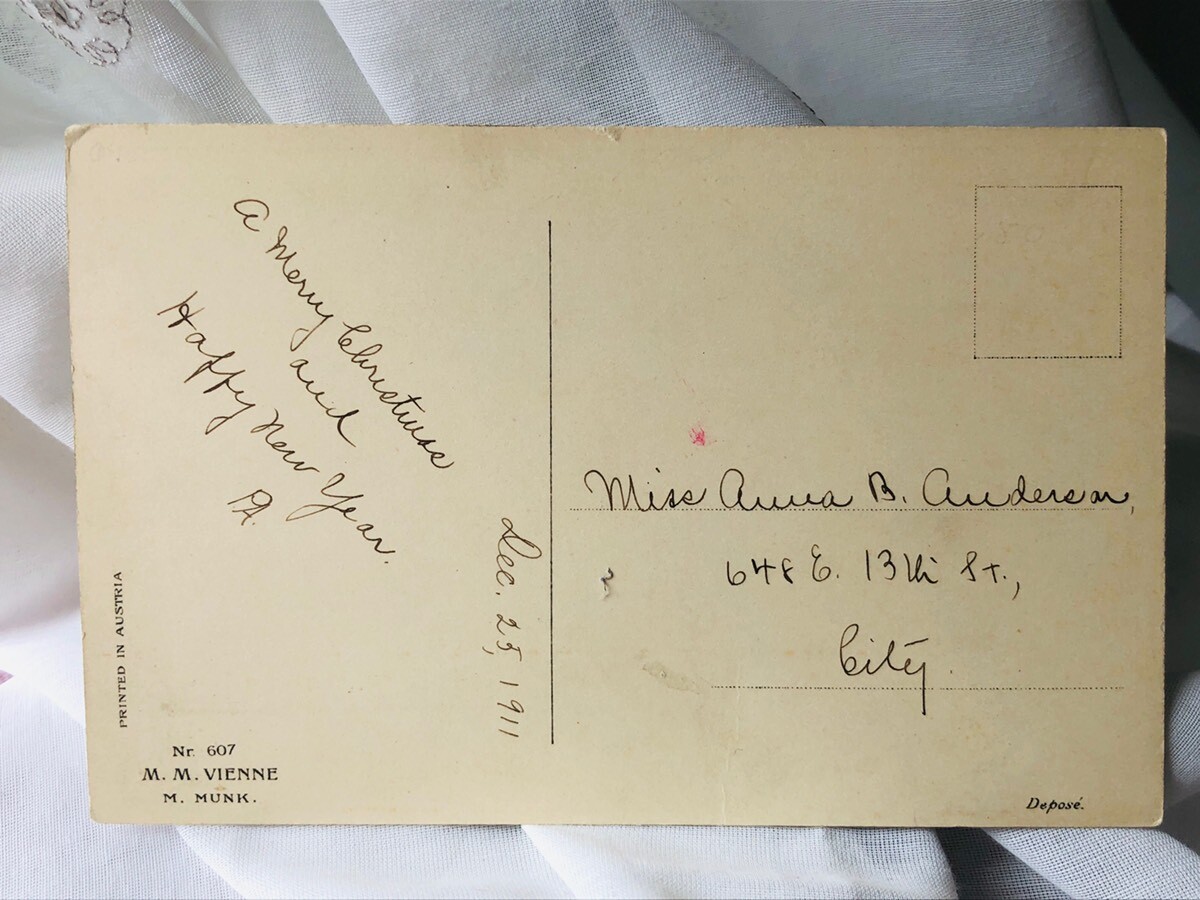 A Merry Christmas
and
Happy New Year.
Dec. 25, 1911
PRINTED IN AUSTRIA
Nr. 607
M. M. VIENNE
M. MUNK.
Miss Anna B. Anderson,
648 E. 13th St.,
City.
Deposé.